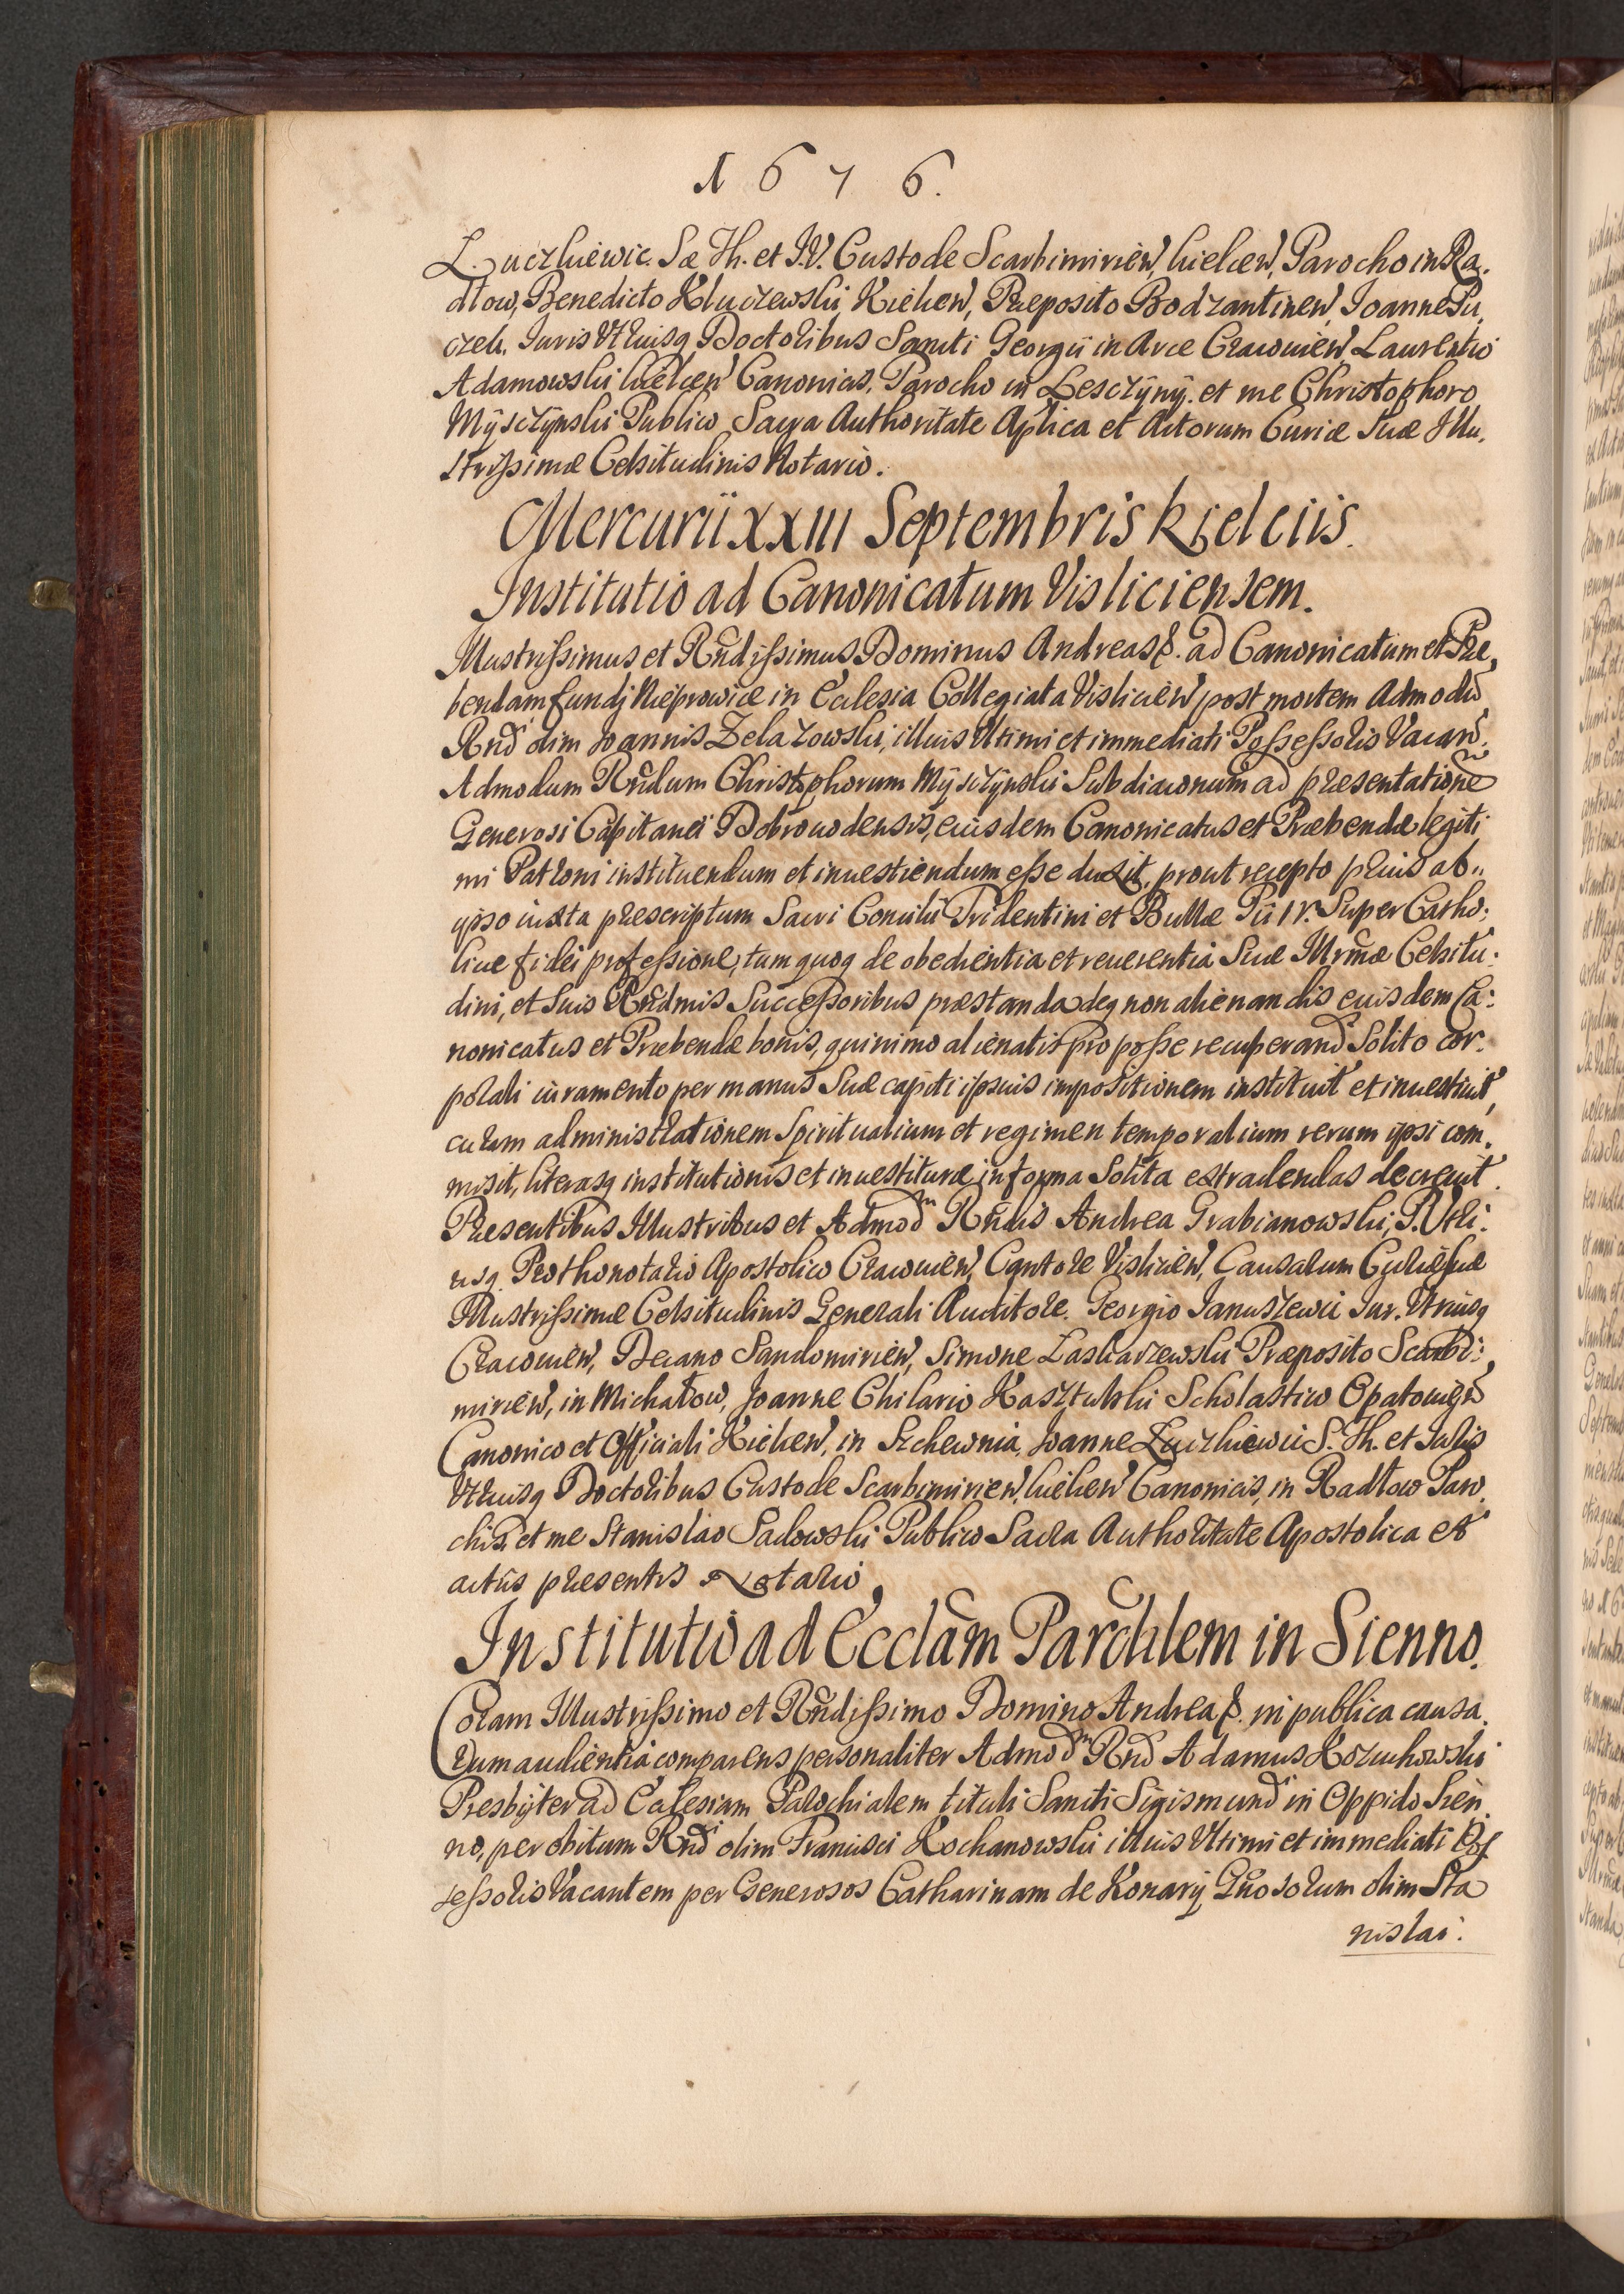 1676.
Luczkiewic. Sæ Th. et I.V. Custode Scarbimirień, kielceń, Parocho in Ra.
dłow, Benedicto Kluczewski Kielceń, Præposito Bodzantineń, Joanne Pu,
czek. Iuris Vtriusq Doctoribus Sancti Georgii in Arce Cracouień, Laurentio
Adamowski kielceń Canonicis, Parocho in Lesczÿnÿ. et me Christophoro
Mÿsczÿnski Publico Sacra Authoritate Aplica et Actorum Curiæ Suæ Illu,
strissimæ Celsitudinis Notario.
Mercurii XXIII Septembris Kielciis.
Institutio ad Canonicatum Visliciensem.
Illustrissimus et Rńdissimus Dominus Andreas &. ad Canonicatum et Præ,
bendam fundj Nieprowice in Ecclesia Collegiata Vislicień post mortem Admodũ
Rnd olim Joannis Zelazowski, illius Vltimi et immediati Possessoris Vacanđ.
Admodum Rńdum Christophorum Mÿsczÿnski Subdiaconum ad præsentationẽ
Generosi Capitanei Dobrowodensis, eiusdem Canonicatus et Præbendæ legiti
mi Patroni instituendum et inuestiendum esse duxit, prout recepto prius ab,,
ipso iuxta præscriptum Sacri Concilii Tridentini et Bullæ Pii IV. Super Catho:
licæ fidei professione, tum quoq de obedientia et reuerentia Suæ Illrmæ Celsitu:
dini, et Suis Rńdmis Successoribus præstanda deq non alienandis eiusdem Ca:
nonicatus et Præbendæ bonis, quinimo alienatis pro posse recuperanđ Solito cor.
porali iuramento per manus Suæ capiti ipsius impositionem instituit et inuestiuit,
curam administrationem Spiritualium et regimen temporalium rerum ipsi com.
misit, literasq institutionis et inuestituræ in forma Solita extradendas decreuit.
Præsentibus Illustribus et Admodm Rńdis Andrea Grabianowski, I. Vtri:
usq Prothonotario Apostolico Cracouień, Cantore Vislicień, Causarum Curiæ Suæ
Illustrissimæ Celsitudinis Generali Auditore. Georgio Januszewic Iur. Vtriusq
Cracouień, Decano Sandomirień, Simone Laskarzewski Præposito Scarbi:
mirień, in Michałow, Joanne Chilario Kasztulski Scholastico Opatouień
Canonico et Officiali Kielceń, in Szchewnia, Joanne Luczkiewic S. Th. et Iuris
Vtriusq Doctoribus Custode Scarbimirień, kielceń Canonicis, in Radłow Paro,
chis, et me Stanislao Sadowski Publico Sacra Authoritate Apostolica et
actus præsentis Notario.
Institutio ad Ecclãm Parõchlem in Sienno.
Coram Illustrissimo et Rńdissimo Domino Andrea &. in publica causa.
rum audientia comparens personaliter Admodm Rnd Adamus Kozuchowski
Presbÿter ad Ecclesiam Parochialem tituli Sancti Sigismundi in Oppido Sien.
no, per obitum Rndi olim Francisci Kochanowski illius Vltimi et immediati Pos
sessoris Vacantem per Generosos Catharinam de Konarÿ, Gnosorum olim Sta
nislai.